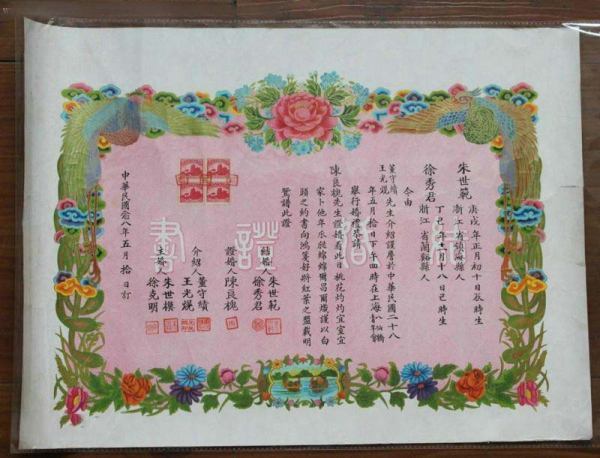 朱世範
浙江省鎮海縣人
庚戌年正月初十日辰時生
徐秀君
浙江省蘭谿縣人
丁巳年 月十八日巳時生
今由
董守績
王光焜
先生介紹謹於中華民國二十八
年五月拾日下午四時在上海
舉行婚禮恭請
陳良槐先生證婚看此日桃花灼灼宜室宜
家卜他年瓜瓞綿綿爾昌爾熾謹以白
頭之約書向鴻箋好將紅葉之盟載明
鴛譜此證
結婚人
朱世範
徐秀君
證婚人陳良槐
介紹人
董守績
王光焜
主婚人
朱世樸
徐克明
中華民國念八年五月拾日訂
結婚證書